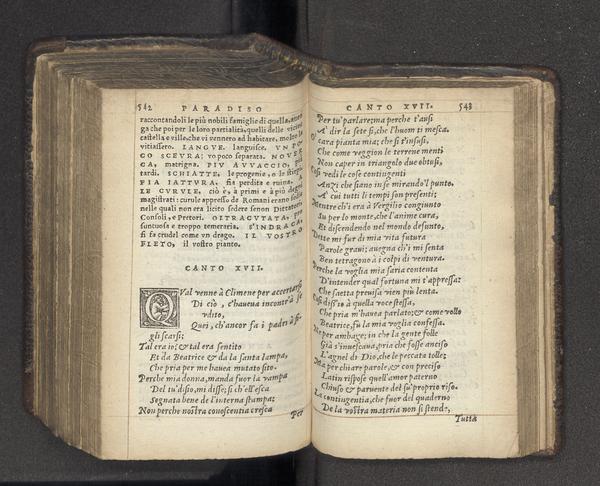 542 PARADISO
raccontandoli le più nobili famiglie di quella, attor
ga che poi per le loro partialità, quelli delle vicine
castella e ville, che vi vennero ad habitare, molto la
vitiassero. LANGVE. languisce. VN PO-
CO SCEVRA; vn poco separata. NOVER
CA, matrigna. PIV AVVACCIO, più
tardi. SCHIATTE, le progenie, o le stirpi.
FIA IATTVRA, fia perdita e ruina. A
LE CVRVLE, ciò è, à primi e à più degni
magistrati: curule appresso de Romani erano sedie
nelle quali non era licito sedere senon Dittatori,
Consoli, e Pretori. OLTRACVTATA, pre
suntuosa e troppo temeraria. S'INDRACA,
si fa crudel come vn drago. IL VOSTRO
FLETO, il vostro pianto.
CANTO XVII.
QVal venne à Climene per accertarsi
Di ciò, c'haueua incontr'à se
vdito,
Quei, ch'ancor fa i padri à fi-
gli scarsi:
Tal era io; & tal era sentito
Et da Beatrice & da la santa lampa,
Che pria per me hauea mutato sito.
Perche mia donna, manda fuor la vampa
Del tu' disio, mi disse; si ch'ell'esca
Segnata bene de l'interna stampa:
Non perche nostra conoscentia cresca
Per
CANTO XVII. 543
Per tu' parlare; ma perche t'ausi
A' dir la sete sì, che l'huom ti mesca.
O' cara pianta mia; che sì t'insusi,
Che come veggion le terrene menti
Non caper in triangolo due ottusi,
Così vedi le cose contingenti
Anzi che siano in se mirando'l punto,
A' cui tutti li tempi son presenti;
Mentre ch'i era à Vergilio congiunto
Su per lo monte, che l'anime cura,
Et discendendo nel mondo defunto,
Dette mi fur di mia vita futura
Parole graui; auegna ch'i mi senta
Ben tetragono à i colpi di ventura.
Perche la voglia mia saria contenta
D'intender qual fortuna mi s'appressa:
Che saetta preuisa vien più lenta.
Così diss'io à quella voce stessa,
Che pria m'hauea parlato; & come volle
Beatrice, fù la mia voglia confessa.
Ne per ambage; in che la gente folle
Già s'inuescaua, pria che fosse anciso
L'agnel di Dio, che le peccata tolle;
Ma per chiare parole, & con preciso
Latin rispose quell'amor paterno
Chiuso & paruente del su' proprio riso.
La contingentia, che fuor del quaderno
De la vostra materia non si stende,
Tutta